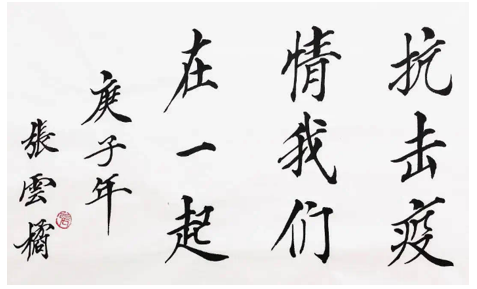 抗击疫
情我们
在一起
庚子年
張雲橘